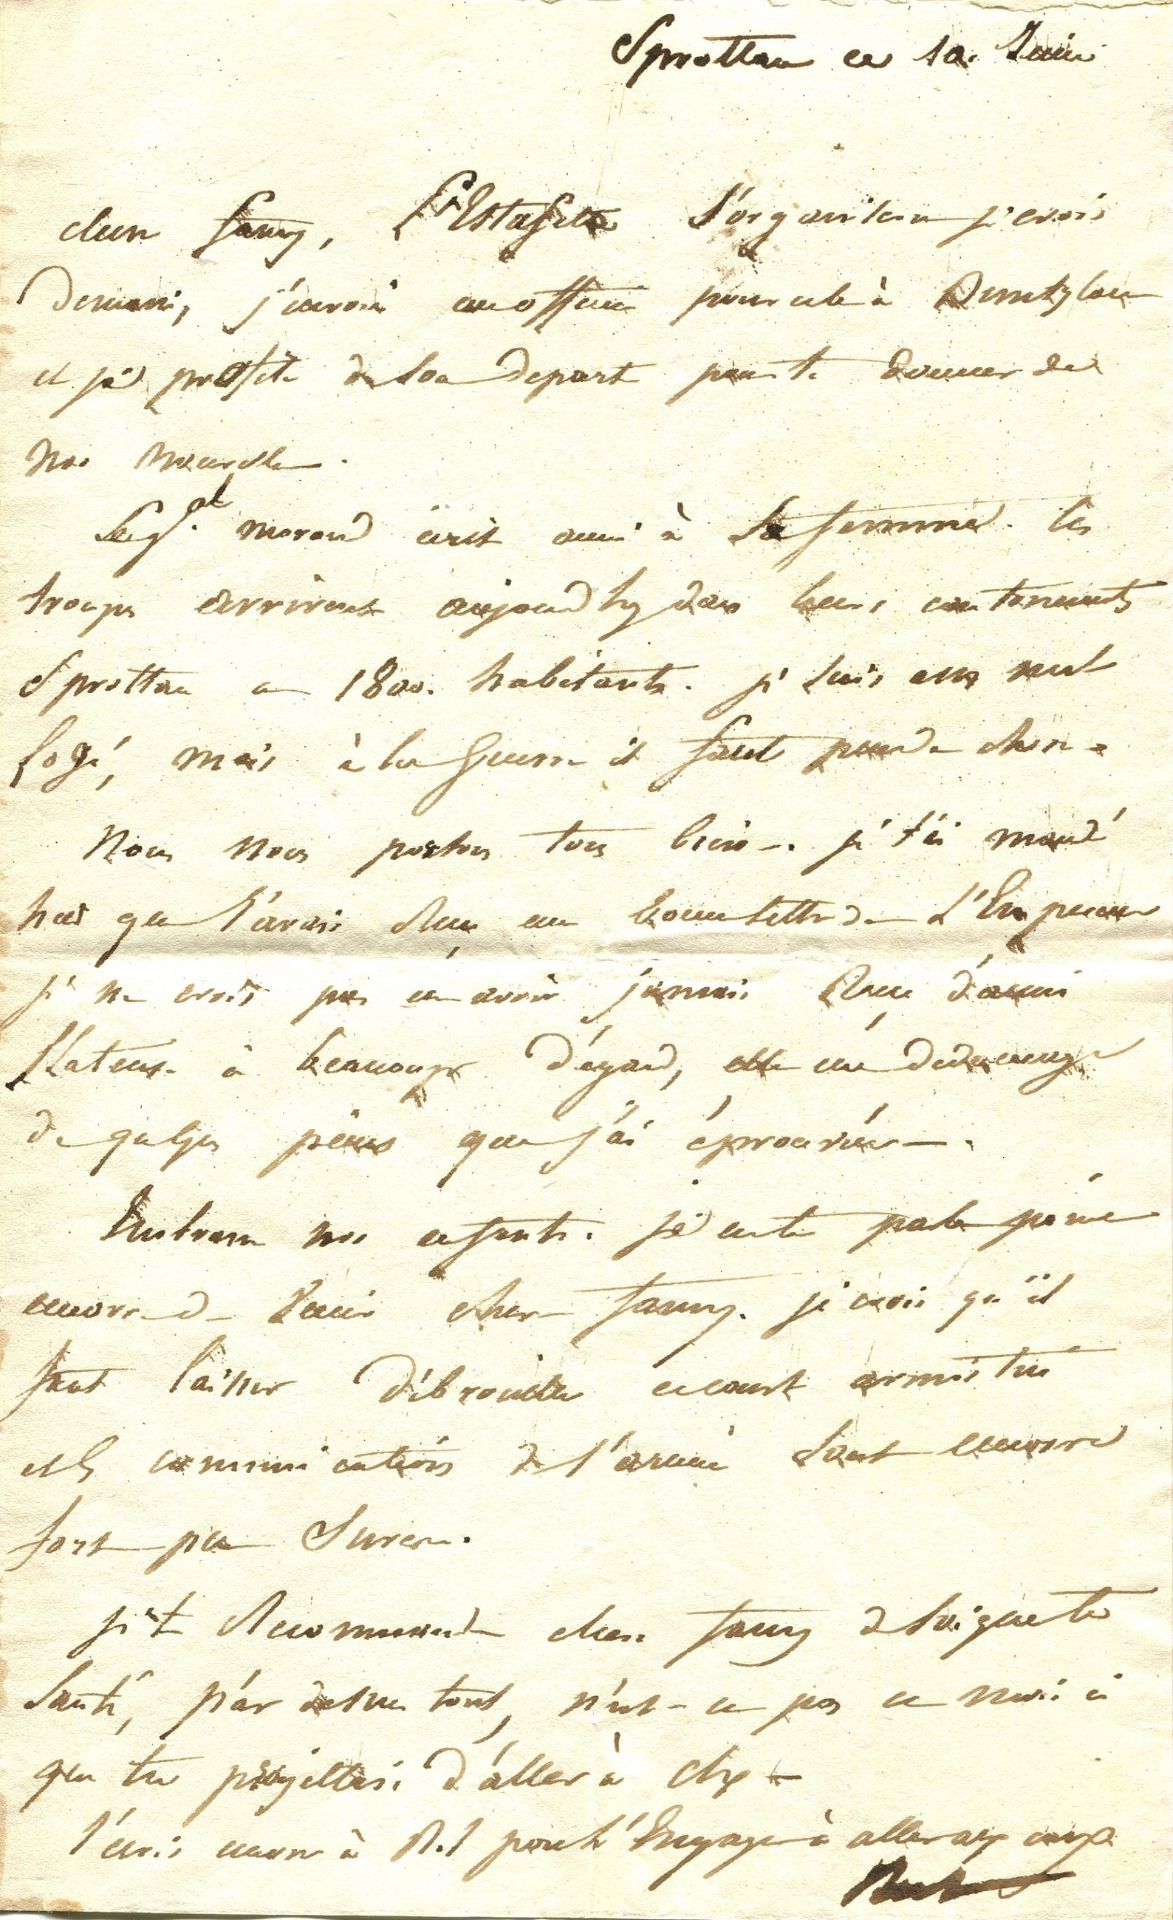 Sprottau ce 10. Juin
chere fanny, L'Estafette S'organisera je crois
Demain, j'envoie un officier pour cela à Buntzlau
et je profite de son depart pour te donner de
nos nouvelles.
Le g.al morand écrit aussi à Sa femme. les
troupes arrivent aujourdhuy dans leurs cantonements
Sprottau a 1800. habitants. je suis assez mal
logé, mais à la guerre il faut
Nous nous portons tous bien. je t'ai mandé
hier que j'avais reçu une bonne lettre de L'Empereur
je ne crois pas en avoir jamais reçu d'aussi
flateuse à beaucoup d'égard, elle me dédomage
de quelques peines que j'ai éprouvées.
Embrasse nos enfants. je ne te parle point
encore de venir chere fanny. je crois qu'il
faut laisser débrouiller court armistice
et les communications de l'armée sont encore
fort peu Sures.
je te recommande chere fanny de soigner ta
Santé, par dessus tout, n'est-ce pas ce mois ci
que tu projettais d'aller à
J'écris encore à pour L'Engager à aller aux eaux